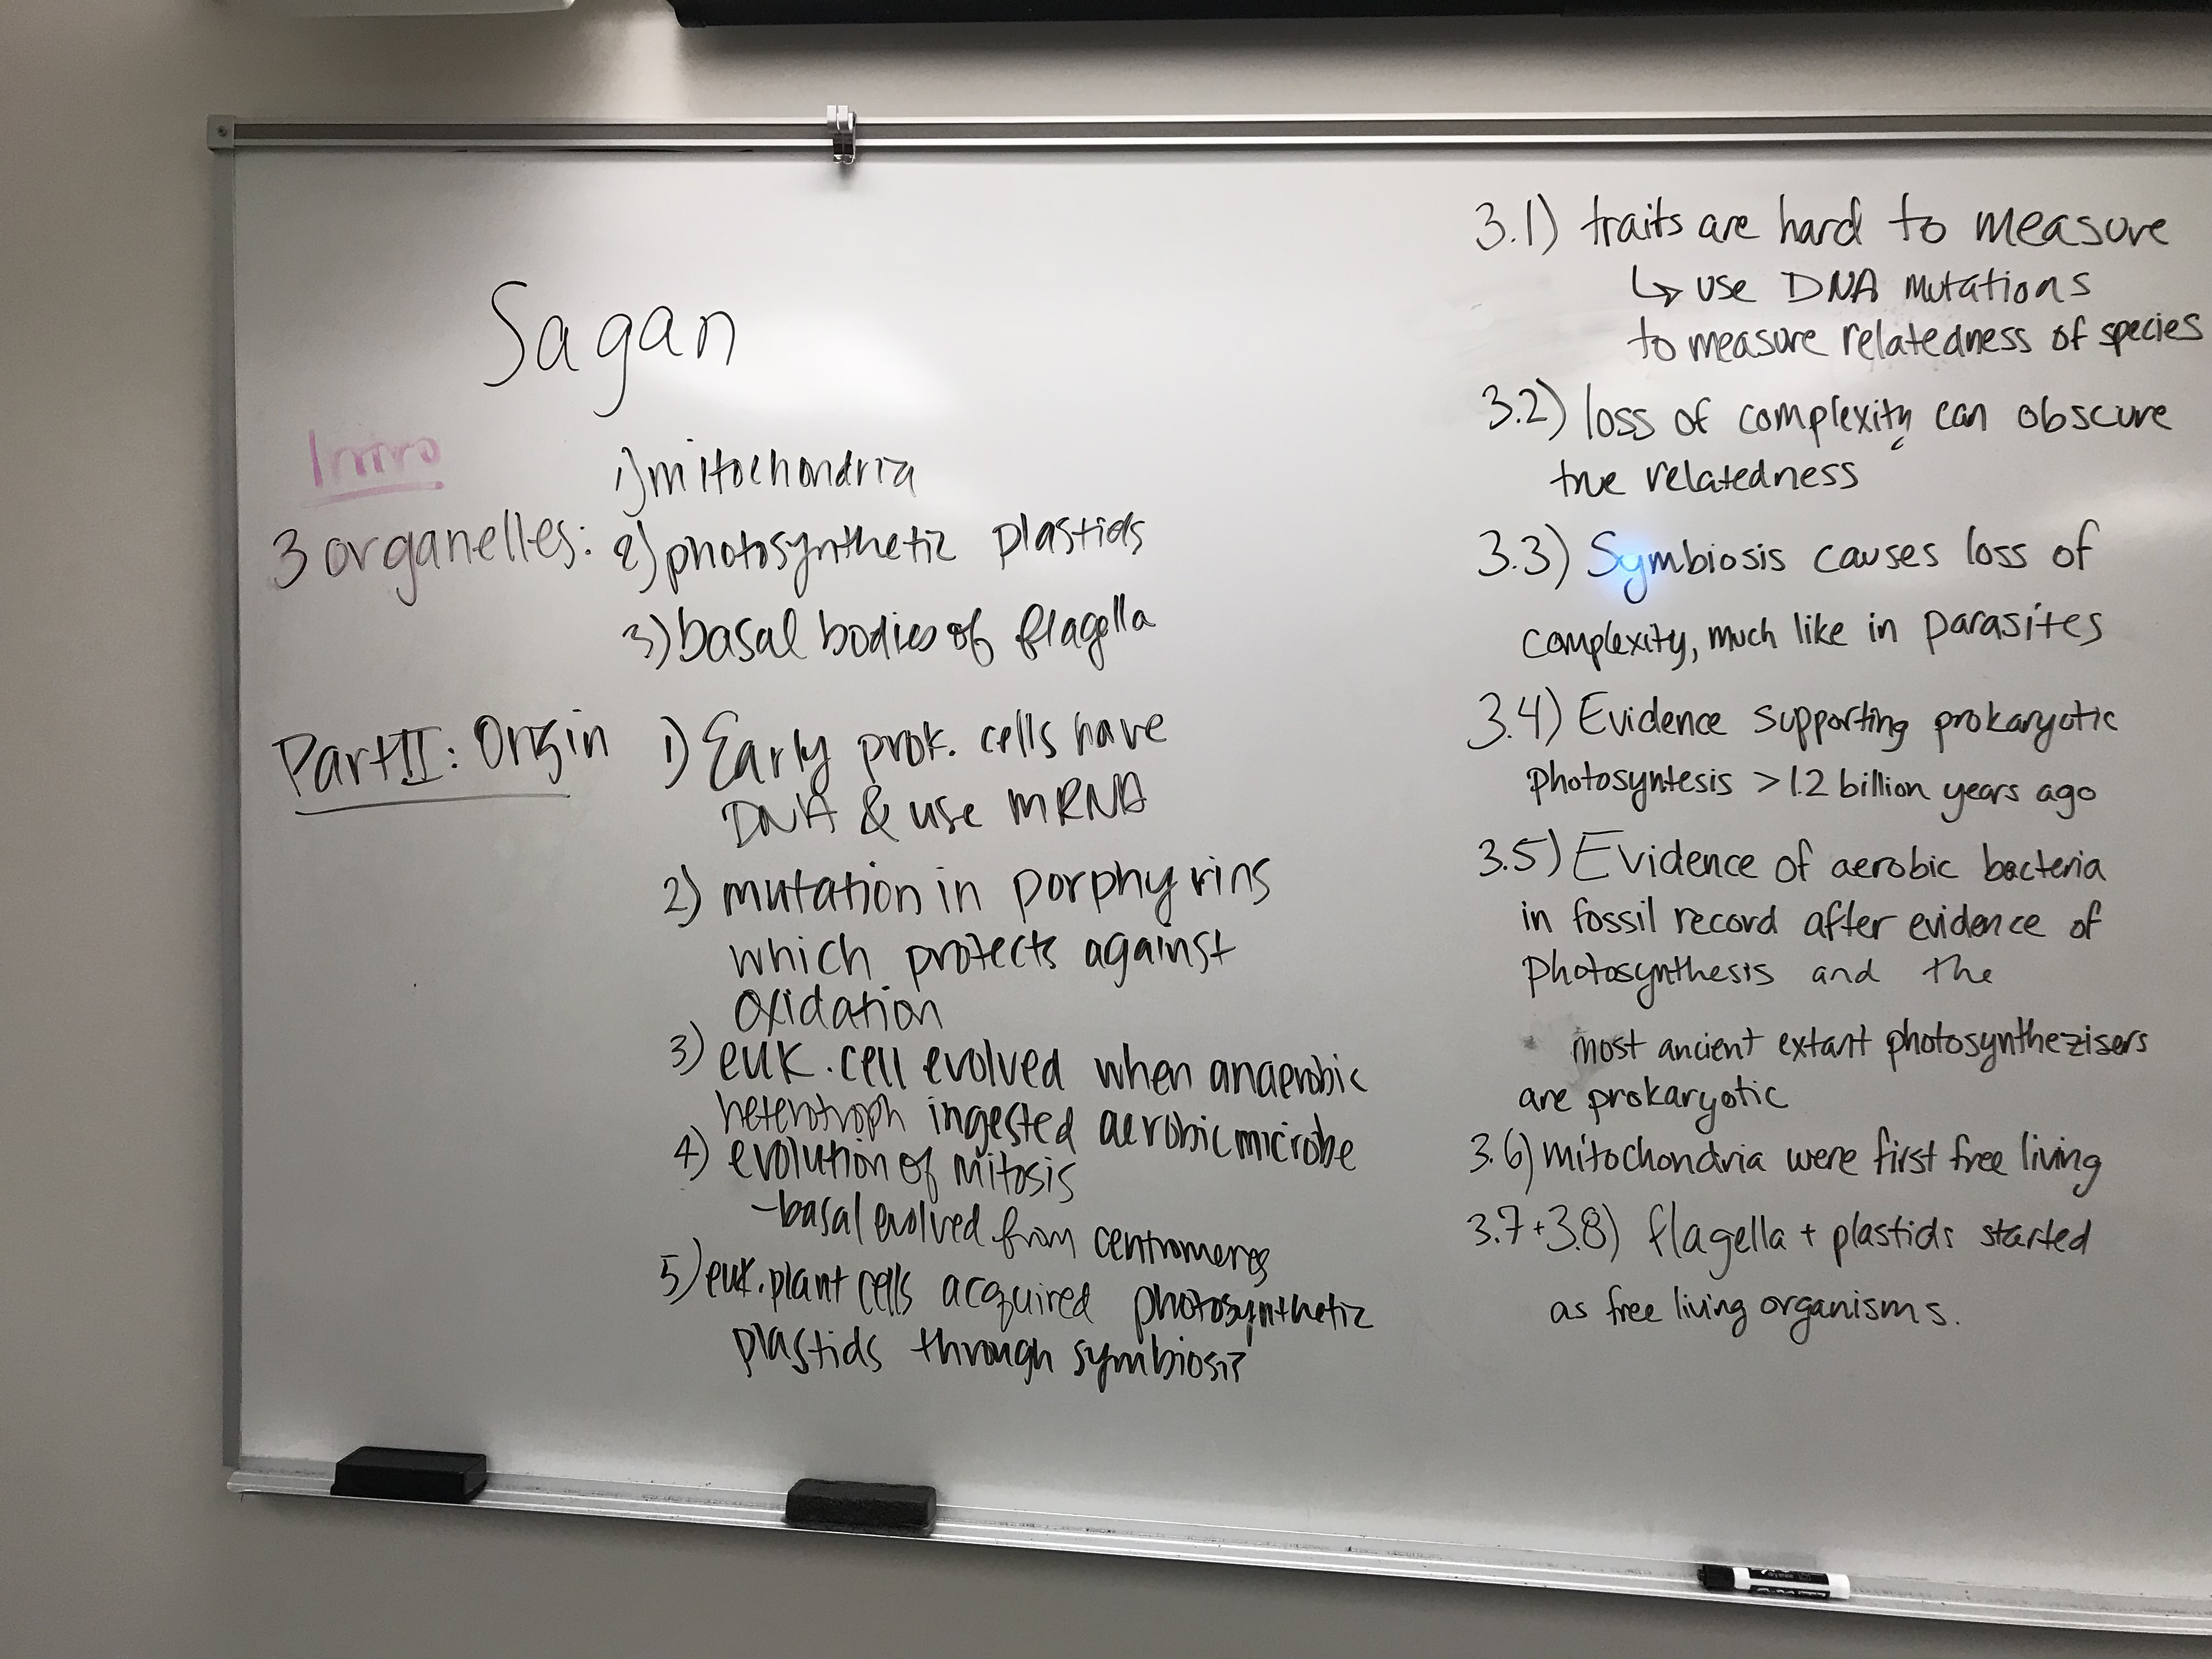 Sagan
Intro
3 organelles:
1) mitochondria
2) photosynthetic plastids
3) basal bodies of flagella
Part II: Origin
1) Early prok. cells have
DNA & use mRNA
2) mutation in porphyrins
which protects against
oxidation
3) euk. cell evolved when anaerobic
heterotroph ingested aerobic microbe
4) evolution of mitosis
- basal evolved from centromeres
5) euk. plant cells acquired photosynthetic
plastids through symbiosis
3.1) traits are hard to measure
↳ use DNA mutations
to measure relatedness of species
3.2) loss of complexity can obscure
true relatedness
3.3) Symbiosis causes loss of
complexity, much like in parasites
3.4) Evidence supporting prokaryotic
photosyntesis > 1.2 billion years ago
3.5) Evidence of aerobic bacteria
in fossil record after evidence of
photosynthesis and the
most ancient extant photosynthezisers
are prokaryotic
3.6) mitochondria were first free living
3.7 + 3.8) flagella + plastids started
as free living organisms.